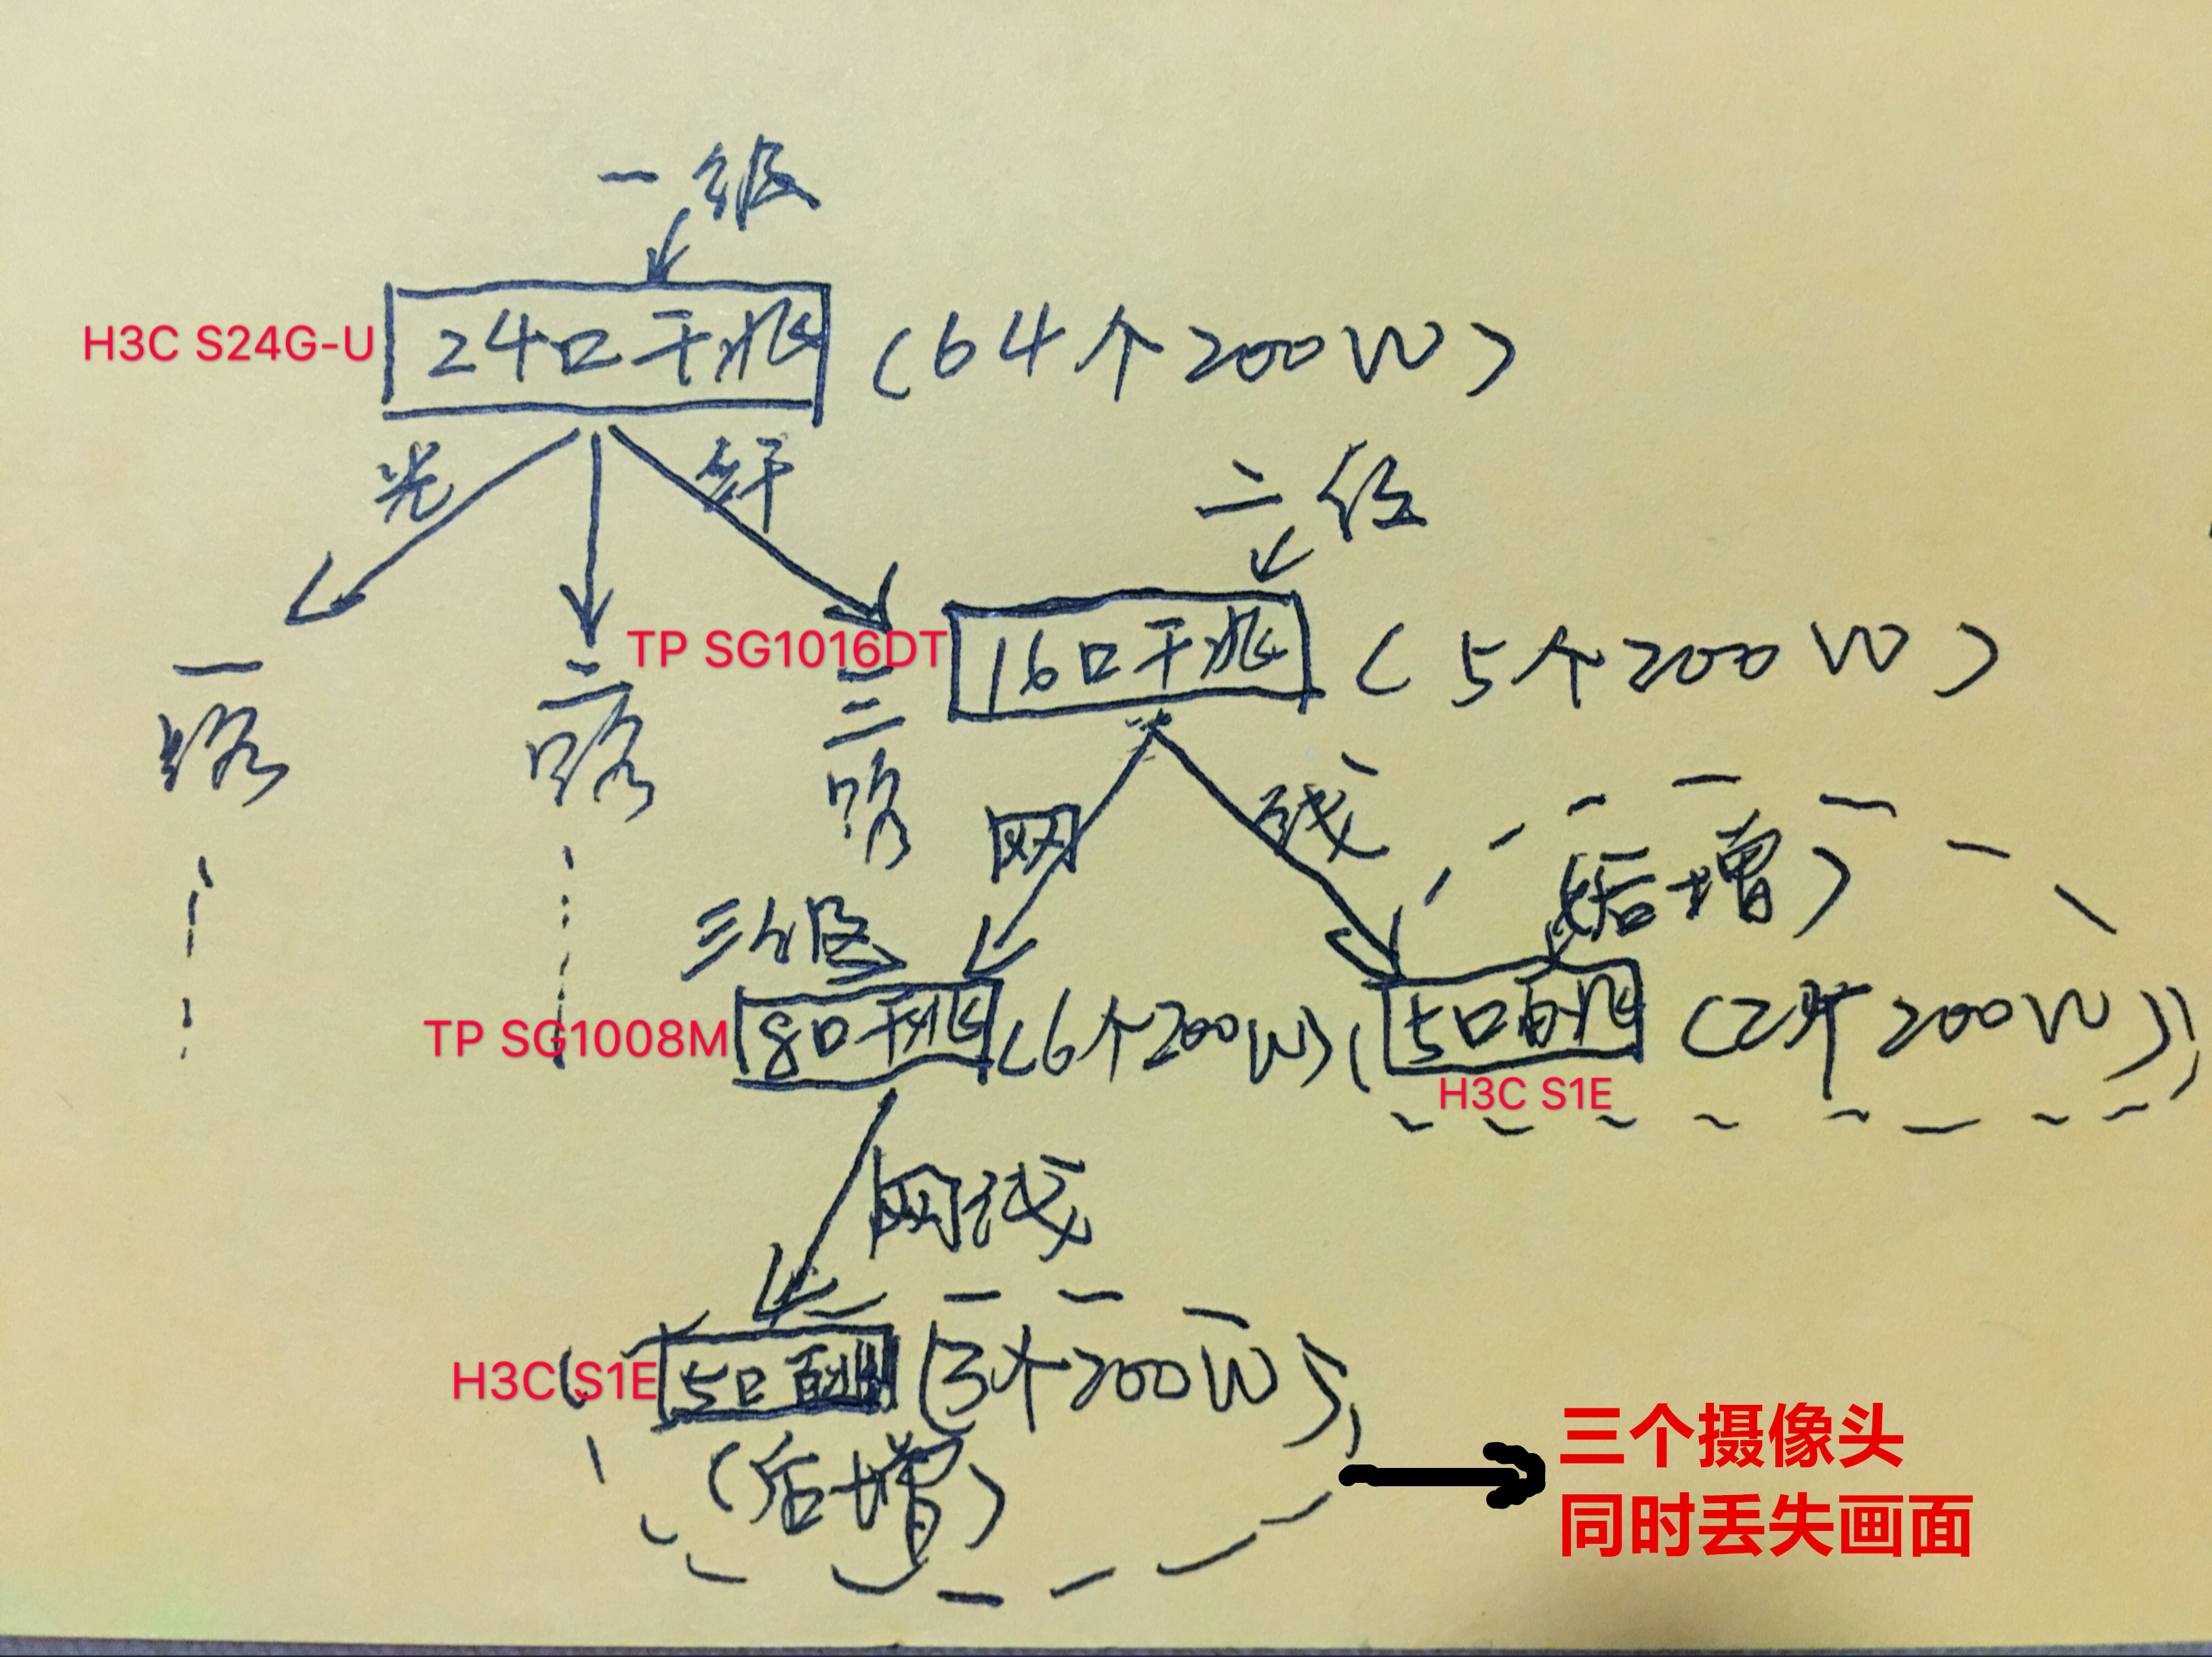 一级
H3C S24G-U
24口千兆
(64个200W)
光
纤
二级
TP SG1016DT
16口千兆
(5个200W)
一路
二路
三路
网
线
(后增)
三级
TP SG1008M
8口千兆
(6个200W)
5口百兆
(2个200W)
H3C S1E
网线
H3C S1E
5口百兆
(3个200W)
(后增)
三个摄像头
同时丢失画面